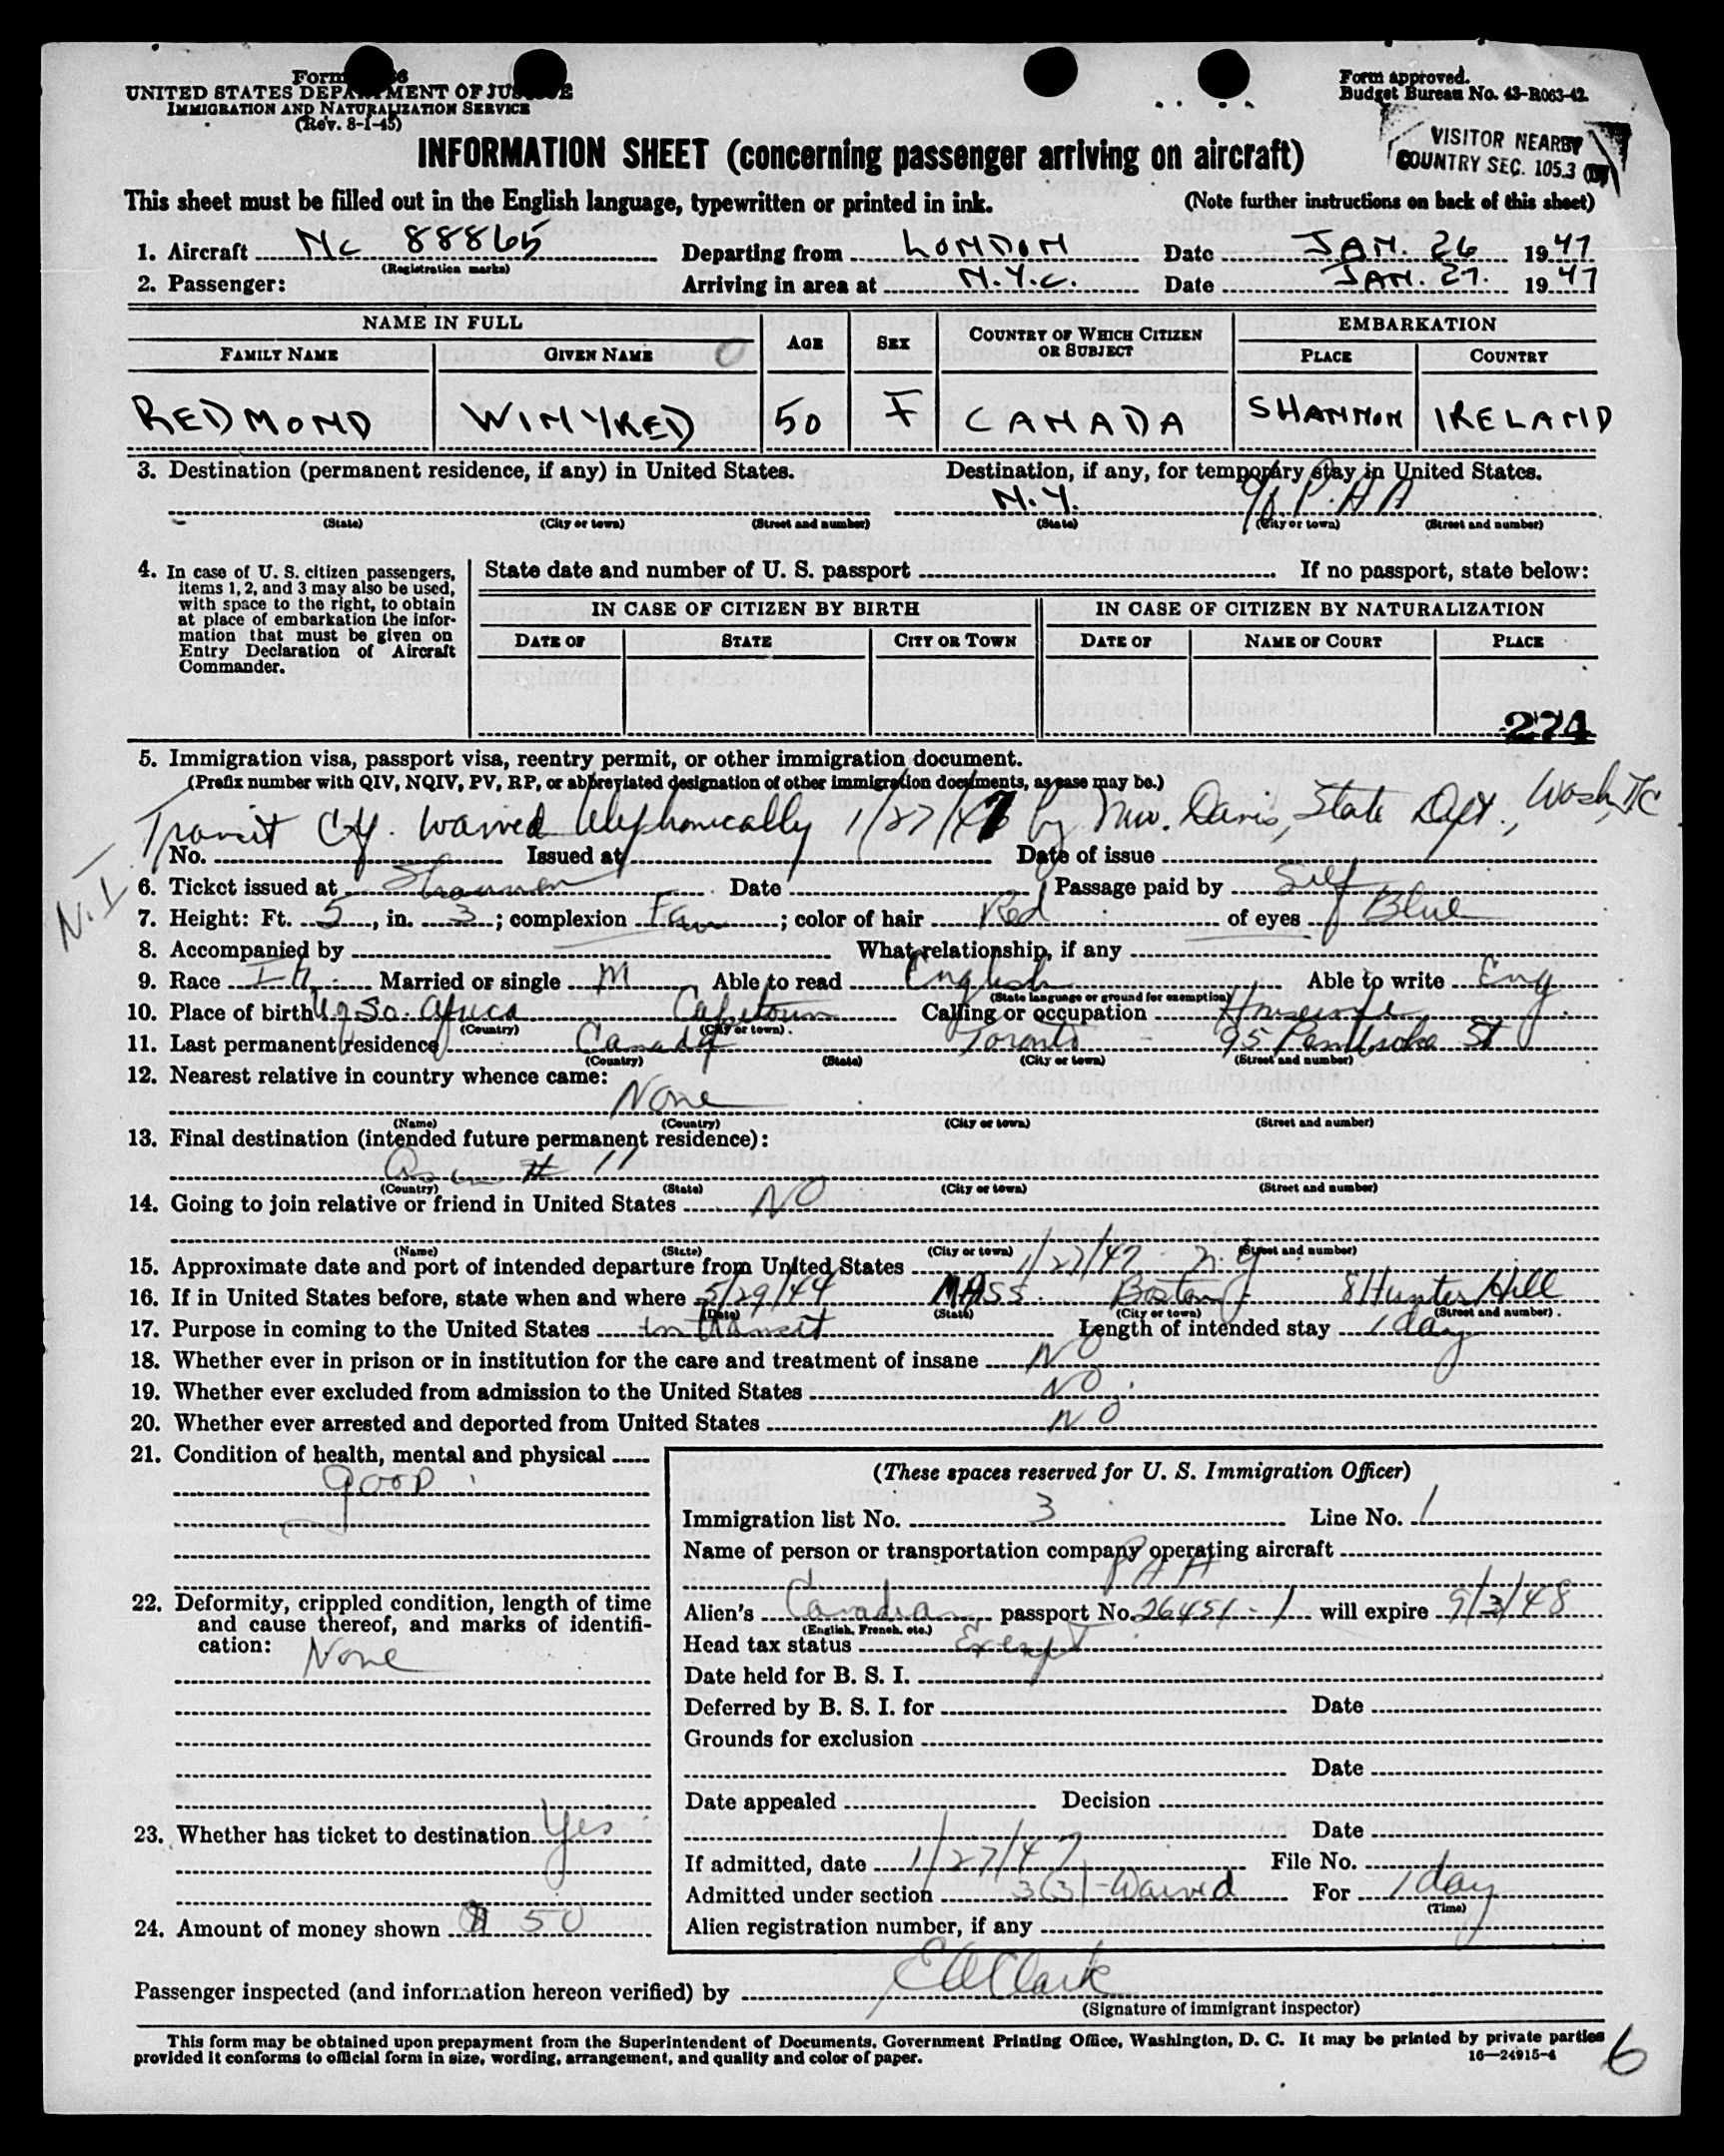 Form
UNITED STATES DEPARTMENT OF JUSTICE
IMMIGRATION AND NATURALIZATION SERVICE
(Rev. 8-1-45)
Form approved.
Budget Bureau No. 43-R063-42.
VISITOR NEARBY
COUNTRY SEC. 105.3
INFORMATION SHEET (concerning passenger arriving on aircraft)
This sheet must be filled out in the English language, typewritten or printed in ink. (Note further instructions on back of this sheet)
1. Aircraft Nc 88865 Departing from LONDON Date JAN. 26 1947
(Registration marks)
2. Passenger: Arriving in area at N.Y.C. Date JAN. 27. 1947
NAME IN FULL AGE SEX COUNTRY OF WHICH CITIZEN OR SUBJECT EMBARKATION
FAMILY NAME GIVEN NAME PLACE COUNTRY
REDMOND WINYRED 50 F CANADA SHANNON IRELAND
3. Destination (permanent residence, if any) in United States. Destination, if any, for temporary stay in United States.
N.Y. c/o P.A A
(State) (City or town) (Street and number) (State) (City or town) (Street and number)
4. In case of U. S. citizen passengers, items 1, 2, and 3 may also be used, with space to the right, to obtain at place of embarkation the information that must be given on Entry Declaration of Aircraft Commander.
State date and number of U. S. passport If no passport, state below:
IN CASE OF CITIZEN BY BIRTH IN CASE OF CITIZEN BY NATURALIZATION
DATE OF STATE CITY OR TOWN DATE OF NAME OF COURT PLACE
274
5. Immigration visa, passport visa, reentry permit, or other immigration document.
(Prefix number with QIV, NQIV, PV, RP, or abbreviated designation of other immigration documents, as case may be.)
Transit Ctf. waived telephonically 1/27/47 by Davis, State Dept., Wash, DC
No. Issued at Date of issue
N.I
6. Ticket issued at Shannon Date Passage paid by Self
7. Height: Ft. 5, in. 3; complexion Fair; color of hair Red of eyes Blue
8. Accompanied by What relationship, if any
9. Race Married or single M Able to read English Able to write Eng
(State language or ground for exemption)
10. Place of birth U of So. Africa Capetown Calling or occupation Housewife
(Country) (City or town).
11. Last permanent residence Canada Toronto - 95 Pembroke St
(Country) (State) (City or town) (Street and number)
12. Nearest relative in country whence came:
None
(Name) (Country) (City or town) (Street and number)
13. Final destination (intended future permanent residence):
As in # 11
(Country) (State) (City or town) (Street and number)
14. Going to join relative or friend in United States NO
(Name) (State) (City or town) (Street and number)
15. Approximate date and port of intended departure from United States 1/27/47 - N.Y
16. If in United States before, state when and where 5/29/44 MASS. Boston 8 Hunter Hill
(Date) (State) (City or town) (Street and number).
17. Purpose in coming to the United States in transit Length of intended stay 1 day
18. Whether ever in prison or in institution for the care and treatment of insane NO
19. Whether ever excluded from admission to the United States NO
20. Whether ever arrested and deported from United States NO
21. Condition of health, mental and physical
good
22. Deformity, crippled condition, length of time and cause thereof, and marks of identification:
None
23. Whether has ticket to destination Yes
24. Amount of money shown $ 50
(These spaces reserved for U. S. Immigration Officer)
Immigration list No. 3 Line No. 1
Name of person or transportation company operating aircraft
PAA
Alien's Canadian passport No. 26451-1 will expire 9/3/48
(English, French, etc.)
Head tax status Exempt
Date held for B. S. I.
Deferred by B. S. I. for Date
Grounds for exclusion
Date
Date appealed Decision
Date
If admitted, date 1/27/47 File No.
Admitted under section 3(3)-Waived For 1 day
(Time)
Alien registration number, if any
Passenger inspected (and information hereon verified) by E A Clark
(Signature of immigrant inspector)
This form may be obtained upon prepayment from the Superintendent of Documents, Government Printing Office, Washington, D. C. It may be printed by private parties
provided it conforms to official form in size, wording, arrangement, and quality and color of paper. 16—24915-4
6